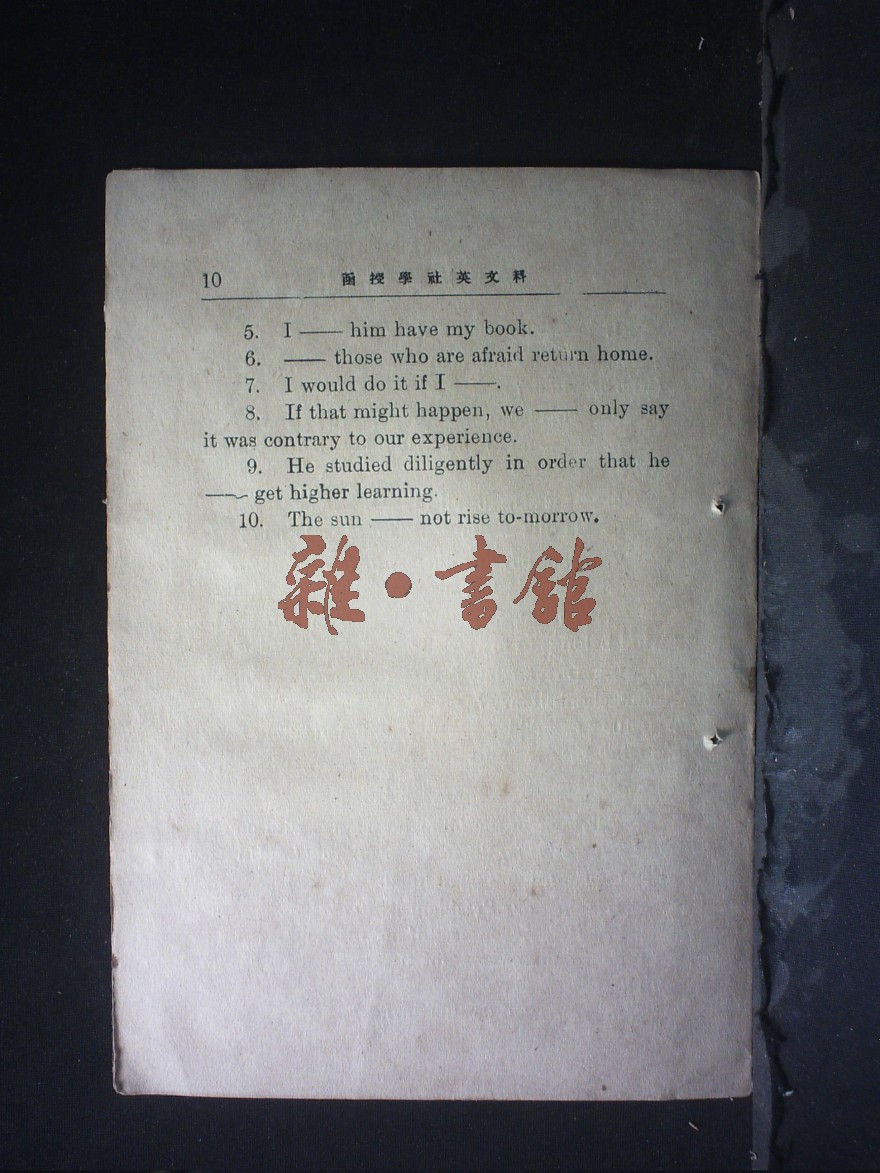 10 函授學社英文科
5. I —— him have my book.
6. —— those who are afraid return home.
7. I would do it if I ——.
8. If that might happen, we —— only say
it was contrary to our experience.
9. He studied diligently in order that he
—— get higher learning.
10. The sun —— not rise to-morrow.
雜•書館